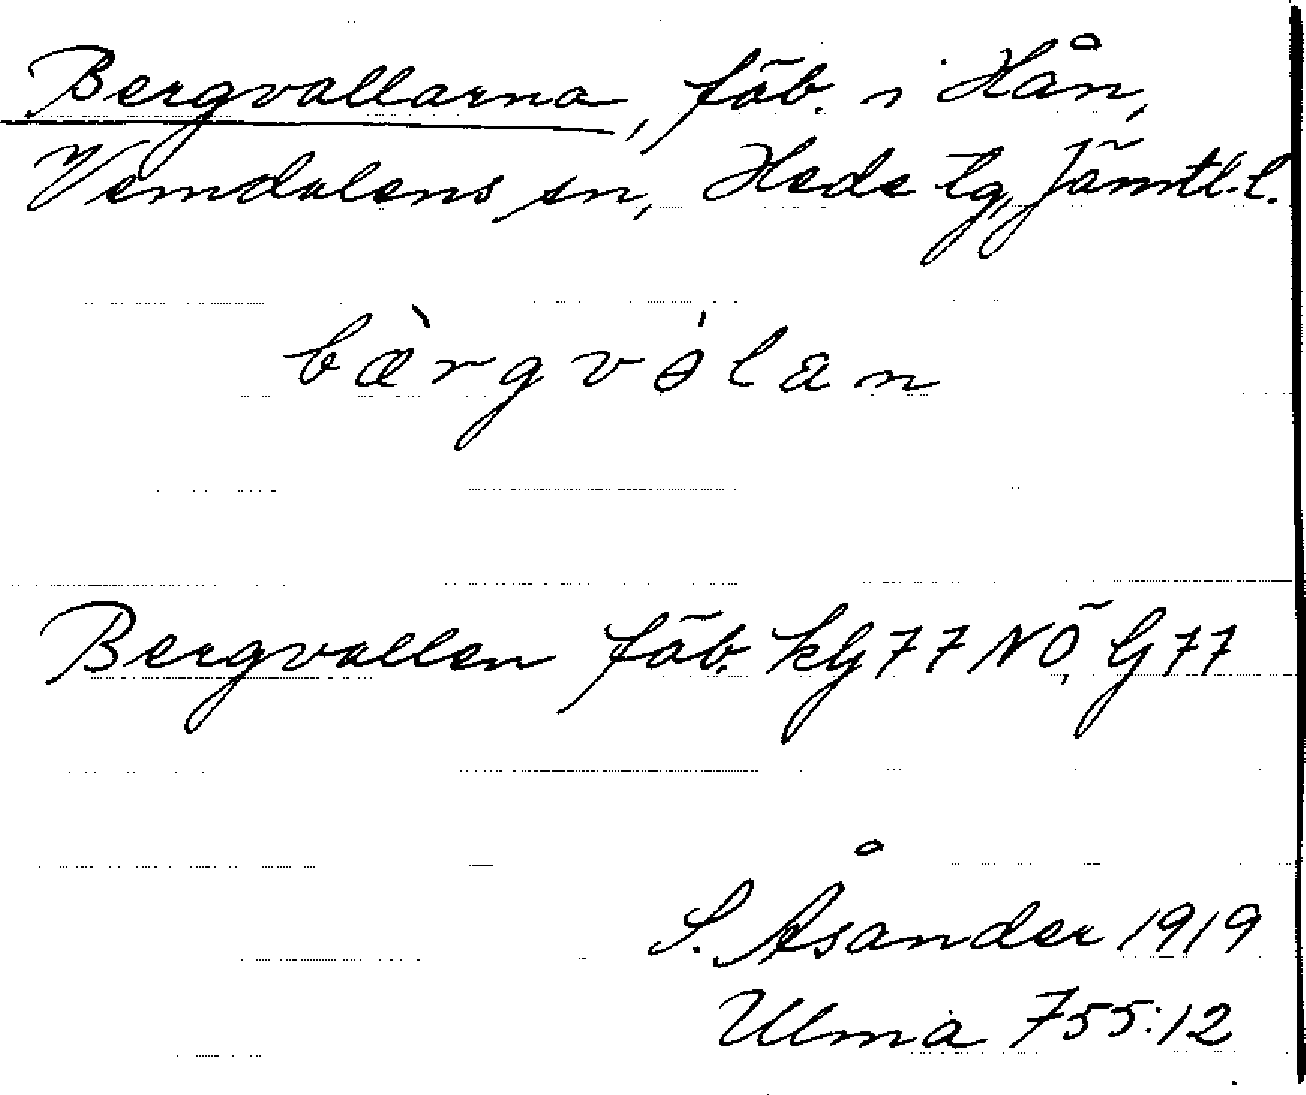 Bergvallarna, fäb. i Hån,
Vemdalens sn, Hede tg, Jämtl. l.
bæ̀rgválan
Bergvallen fäb. kbl 77 NÖ, G 77
S. Åsander 1919
Ulma 755:12